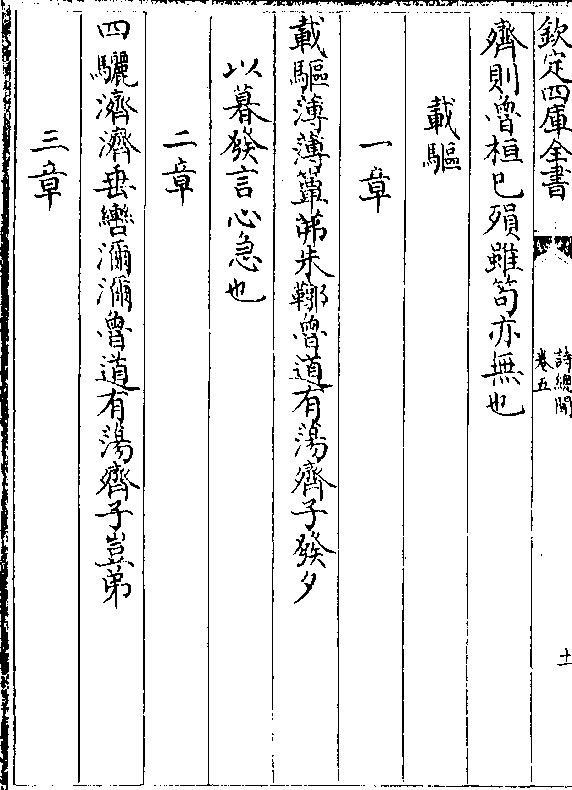 欽定四庫全書
詩總聞
卷五
十一
齊則魯桓已殞雖笱亦無也
載驅
一章
載驅薄薄簟茀朱鞹魯道有蕩齊子發夕
以暮發言心急也
二章
四驪濟濟垂轡濔濔魯道有蕩齊子豈弟
三章